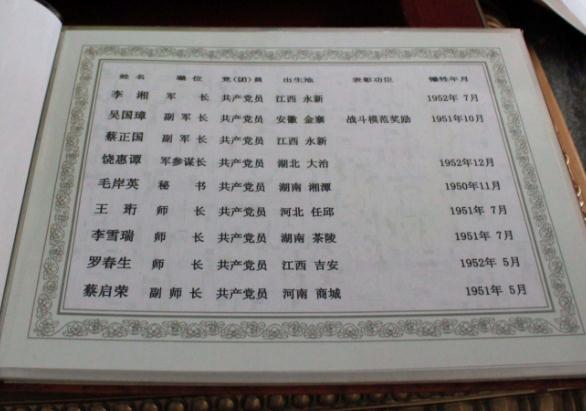 姓名 职位 党(团)员 出生地 表彰功臣 牺牲年月
李湘 军长 共产党员 江西 永新 1952年 7月
吴国璋 副军长 共产党员 安徽 金寨 战斗模范奖励 1951年10月
蔡正国 副军长 共产党员 江西 永新
饶惠谭 军参谋长 共产党员 湖北 大治 1952年12月
毛岸英 秘书 共产党员 湖南 湘潭 1950年11月
王珩 师长 共产党员 河北 任邱 1951年 7月
李雪瑞 师长 共产党员 湖南 茶陵 1951年 7月
罗春生 师长 共产党员 江西 吉安 1952年 5月
蔡启荣 副师长 共产党员 河南 商城 1951年 5月